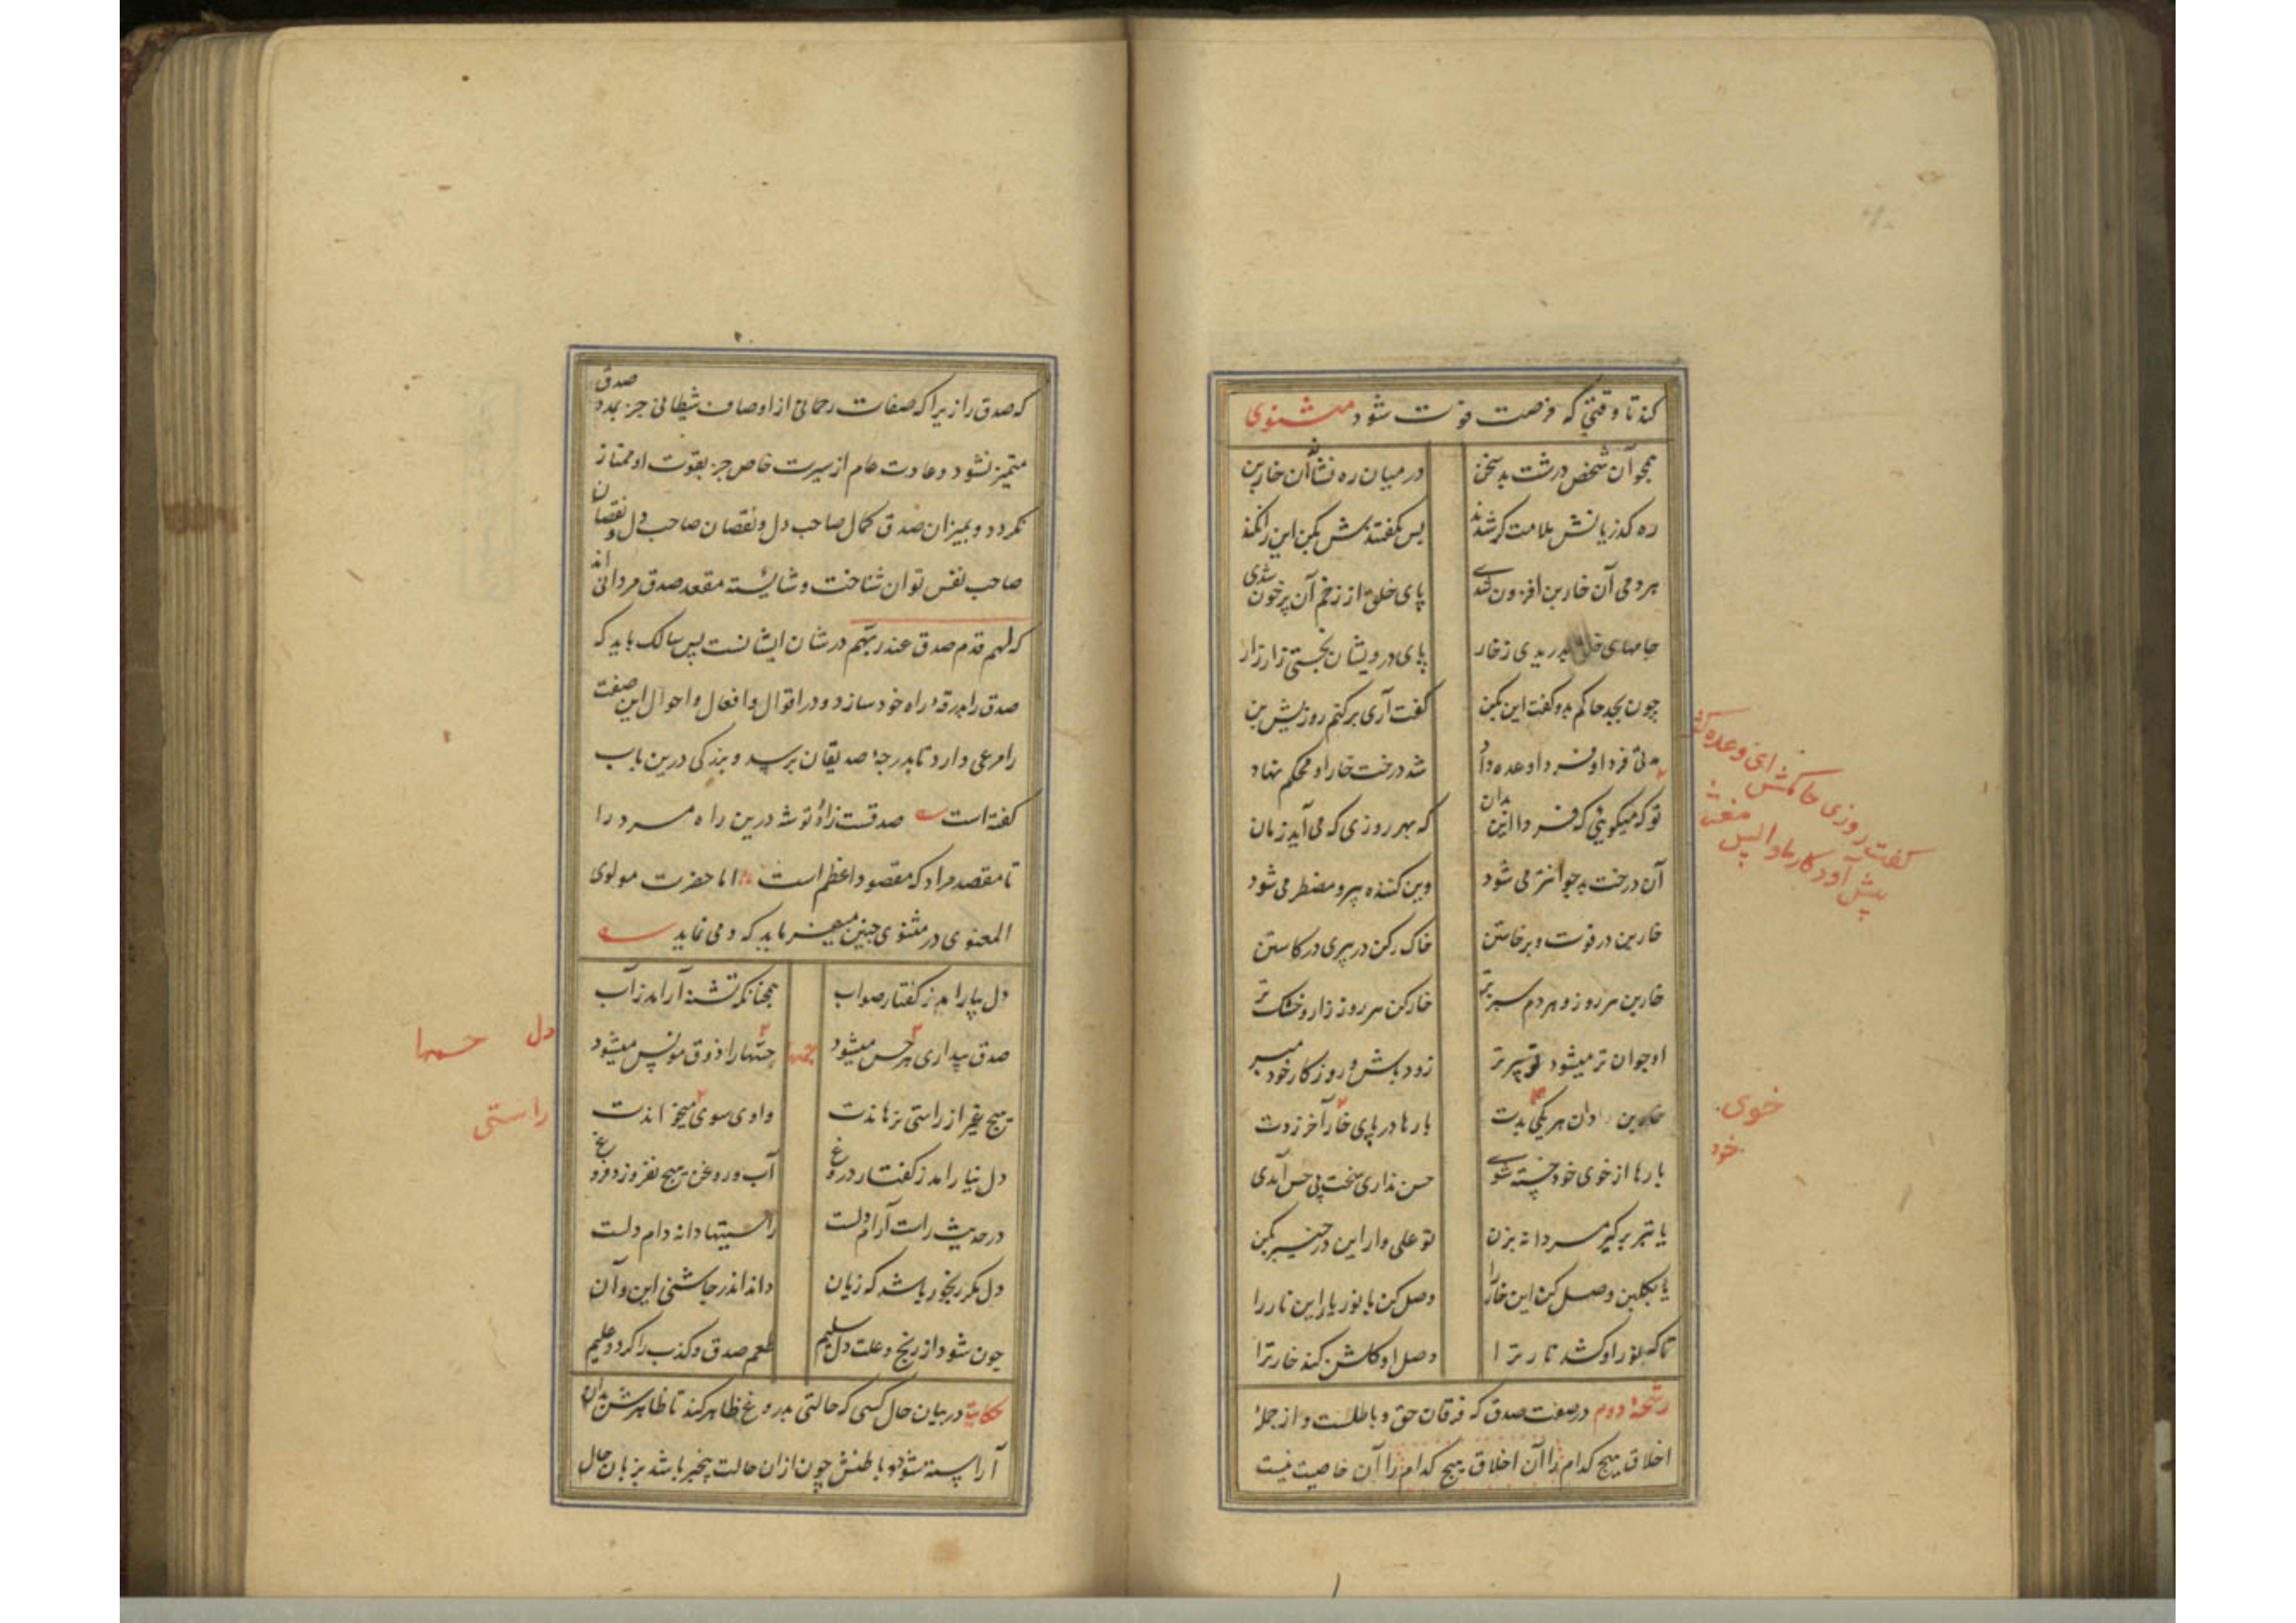 کند تا وقتی که فرصت فوت شود مثنوی
همچو آن شخص درشت بد سخن در میان ره نشاند آن خاربن
ره گذریانش ملامت گر شدند بس بگفتندش بکن این را نکند
هر دمی آن خاربن افزون شدی پای خلق از زخم آن پر خون شدی
جامهای خلق بدریدی ز خار پای درویشان بخستی زار زار
چون بجد حاکم بدو گفت این بکن گفت آری برکنم روزیش من
مدتی فردا و فردا وعده داد شد درخت خار او محکم نهاد
تو که میگویی که فردا این بدان که بهر روزی که می آید زمان
آن درخت بد جوانتر می شود وین کننده پیر و مضطر می شود
خاربن در قوت و برخاستن خارکن در پیری در کاستن
خاربن هر روز و هر دم سبز تر خارکن هر روز زار و خشک تر
او جوان تر میشود تو پیر تر زود باش و روزگار خود مبر
خاربن دان هر یکی بدت بارها در پای خار آخر زدت
بارها از خوی خود خسته شدی حس نداری سخت بی حس آمدی
یا تبر برگیر مردانه بزن تو علی وار این در خیبر بکن
یا بگلبن وصل کن این خار را وصل کن با نور یار این نار را
تا که نور او کشد نار ترا وصل او گلشن کند خار ترا
رشحهٔ دوم در صفت صدق که فرقان حق و باطلست و از جملهٔ
اخلاق هیچ کدام را آن اخلاق هیچ کدام را آن خاصیت نیست
گفت روزی حاکمش ای وعده کژ
پیش آ در کار ما واپس مغژ
خوی
خود
که صدق را زیرا که صفات رحمانی از اوصاف شیطانی جز بمدد صدق
متمیز نشود و عادت عام از سیرت خاص جز بقوت او ممتاز
نگردد و بمیزان صدق کمال صاحب دل و نقصان صاحب دل و نقصان
صاحب نفس توان شناخت و شایستهٔ مقعد صدق مردانی اند
که لهم قدم صدق عند ربهم در شان ایشانست پس سالک باید که
صدق را بدرقهٔ راه خود سازد و در اقوال و افعال و احوال این صفت
را مرعی دارد تا بدرجهٔ صدیقان برسد و بزرگی درین باب
گفته است صدقست زاد و توشه درین راه مرد را
تا مقصد مراد که مقصود اعظم است اما حضرت مولوی
المعنوی در مثنوی چنین میفرماید که و می نماید
دل بیارامد ز گفتار صواب همچنانکه تشنه آرامد ز آب
صدق بیداری هر حس میشود حسها را ذوق مونس میشود
هیچ غیر از راستی نرهاندت دادی سوی میخواندت
دل نیارامد ز گفتار دروغ آب و روغن هیچ نفروزد فروغ
در حدیث راست آرام دلست راستیها دانه دام دلست
دل مگر رنجور باشد که زبان داند اندر چاشنی این و آن
چون شود از رنج و علت دل سلیم طعم صدق و کذب را گردد علیم
حکایت در بیان حال کسی که حالتی بدروغ ظاهر کند تا ظاهرش بدان
آراسته شود و باطنش چون از آن حالت بیخبر باشد بزبان حال
دل حسها
راستی